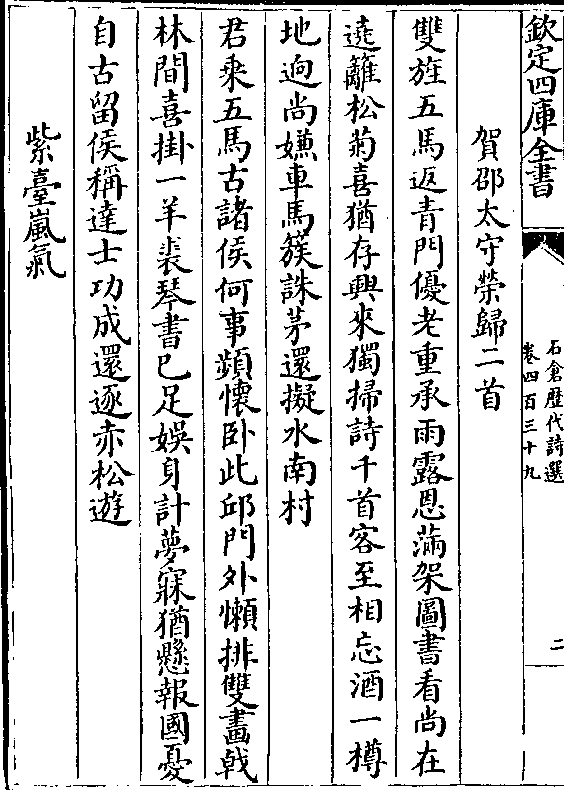 欽定四庫全書
石倉歴代詩選
卷四百三十九
二
賀邵太守榮歸二首
雙旌五馬返青門優老重承雨露恩滿架圖書看尚在
遶籬松菊喜猶存興來獨掃詩千首客至相忘酒一樽
地逈尚嫌車馬簇誅茅還擬水南村
君乘五馬古諸侯何事頻懐卧此邱門外懶排雙畫㦸
林間喜掛一羊裘琴書已足娯身計夢寐猶懸報國憂
自古留侯稱達士功成還逐赤松遊
紫臺嵐氣